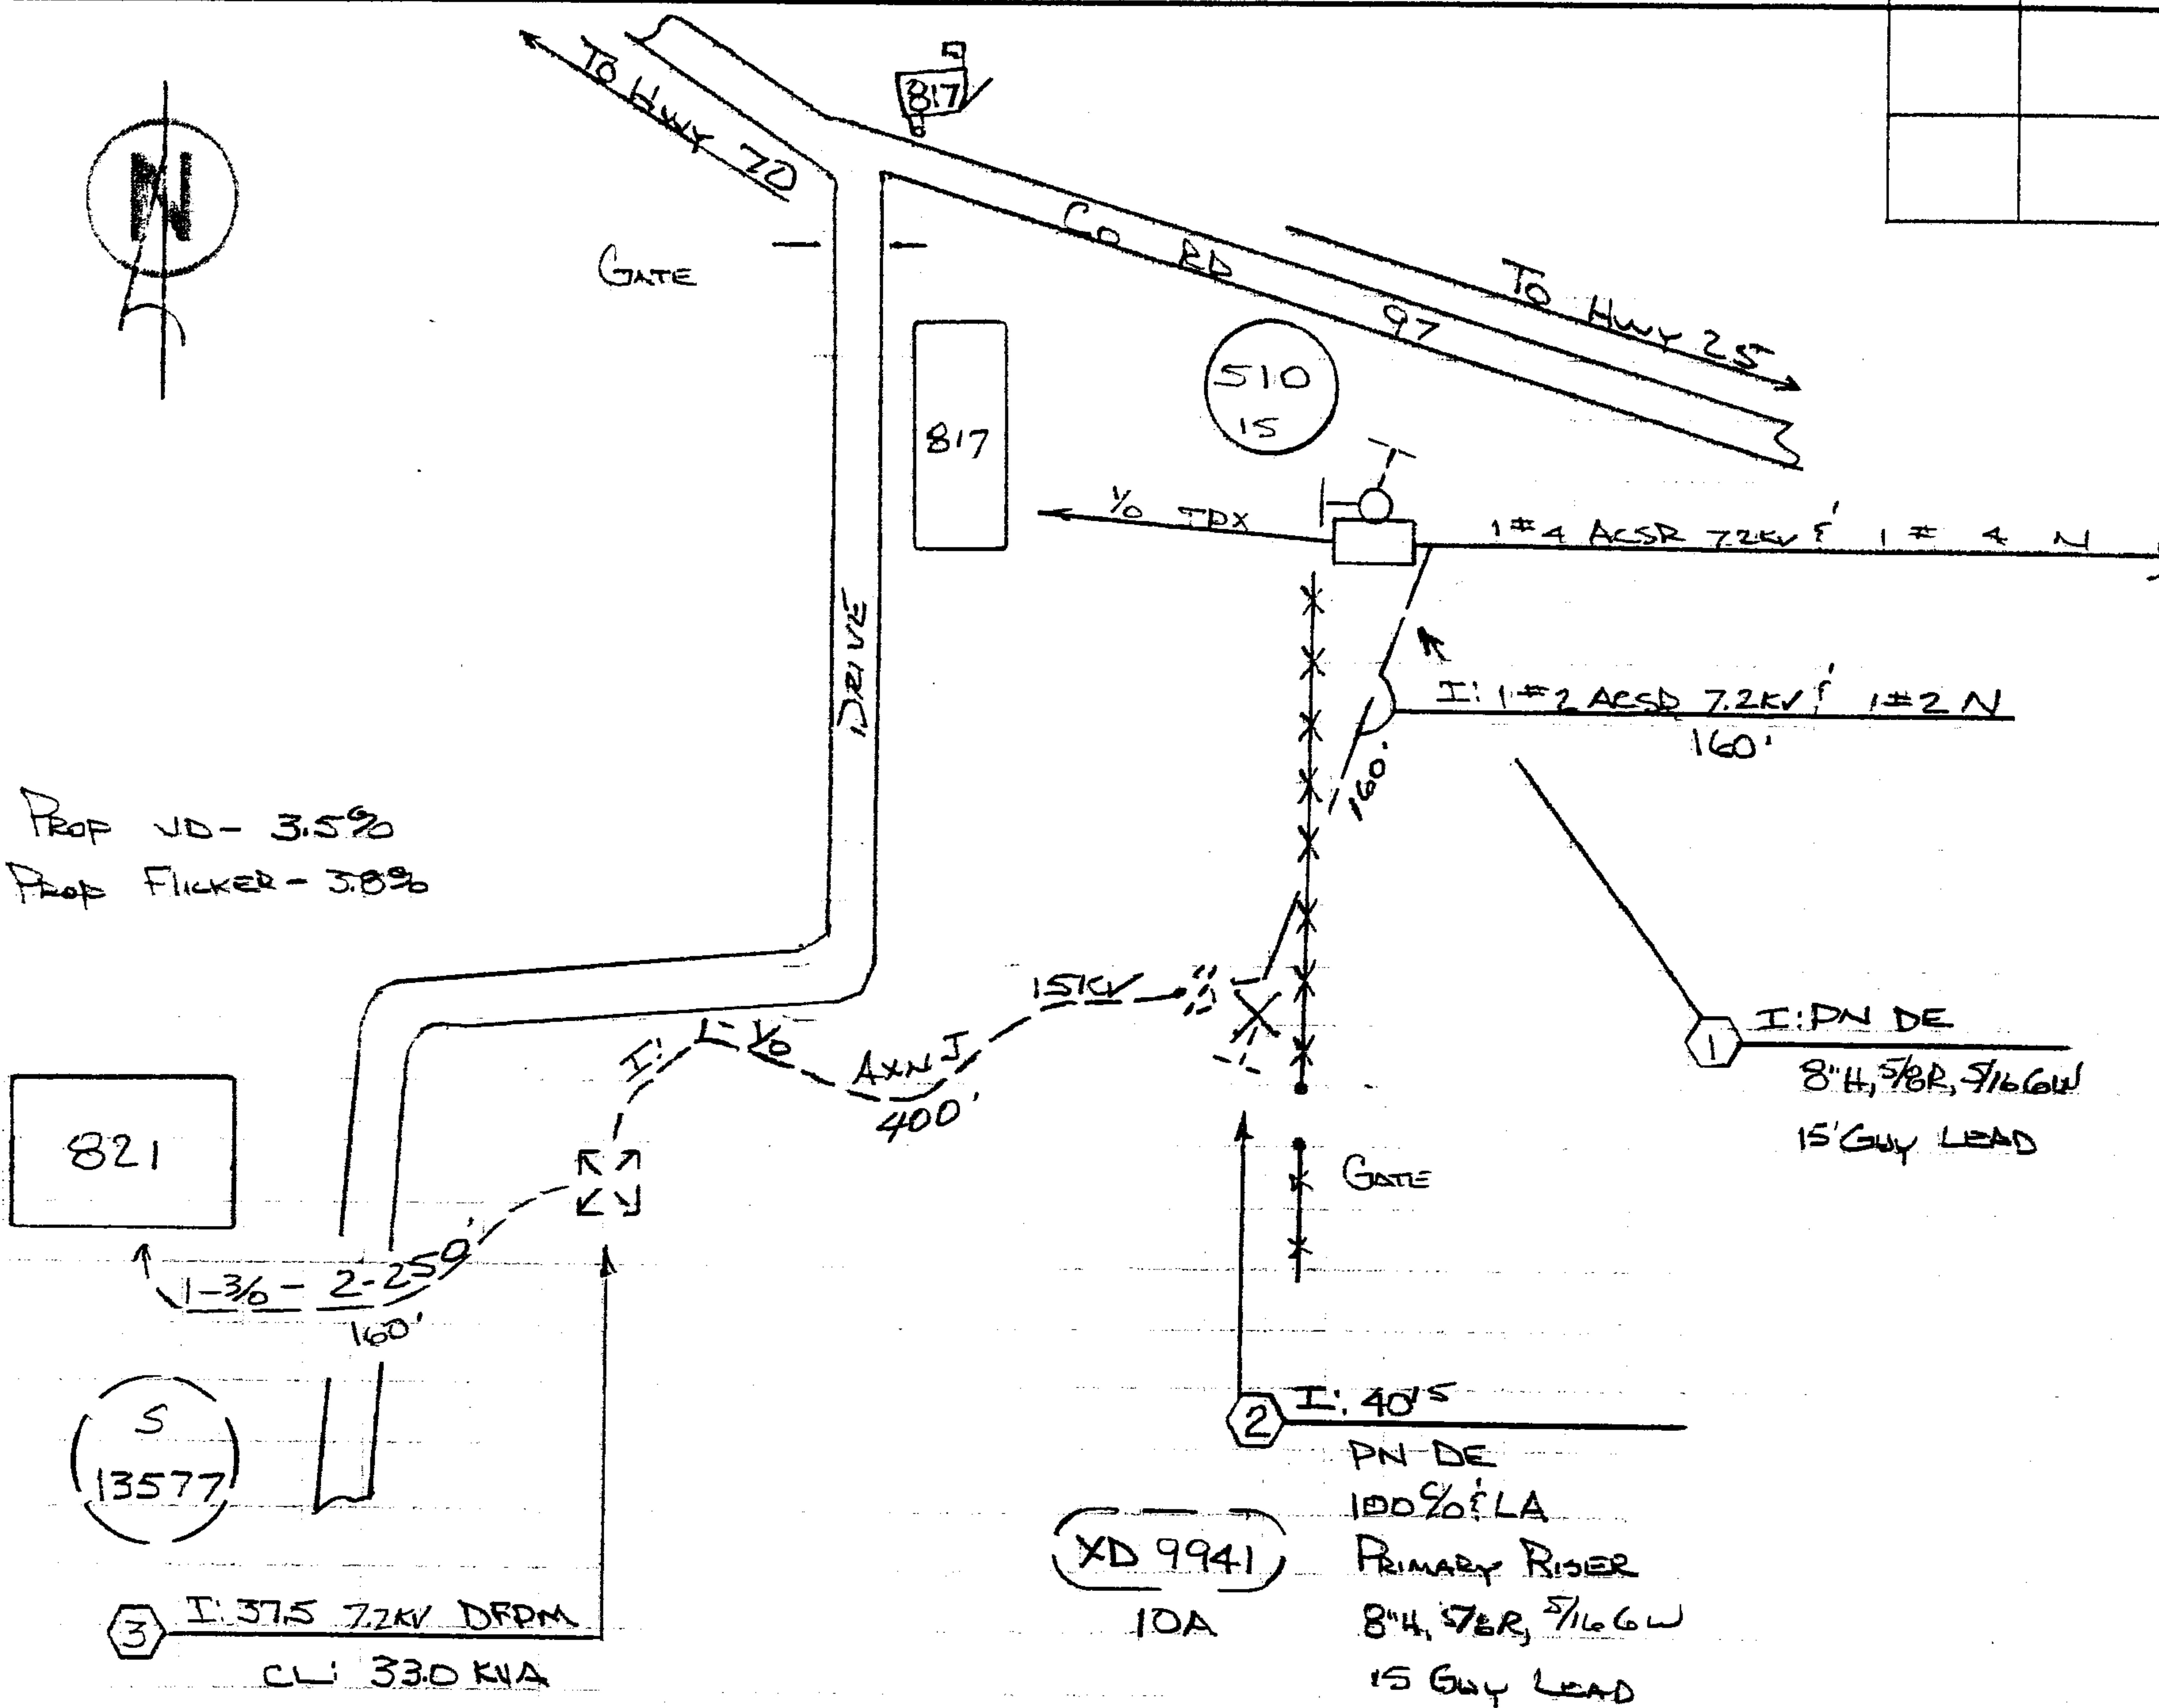 To Hwy 70
817
N
GATE
Co RD 97
To Hwy 25
817
510
15
1/0 TPX
1#4 ACSR 7.2KV & 1 # 4 N
DRIVE
I: 1#2 ACSR 7.2KV & 1#2 N
160'
160'
PROP VD- 3.5%
PROP FLICKER- 3.8%
15KV
I: 1- 1/0
AXNJ
400'
1
I: PN DE
8"H, 5/8R, 5/16 GW
15' GUY LEAD
821
GATE
1-3/0- 2-250'
160'
S
13577
2
I: 40'5
PN-DE
100 C/O & LA
PRIMARY RISER
8"H, 5/8R, 5/16 GW
15 GUY LEAD
XD 9941
10A
3
I: 37.5 7.2KV DFPM
CL: 33.0 KVA